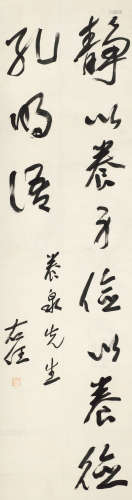 静以養身儉以養德
孔明語
養泉先生
右任